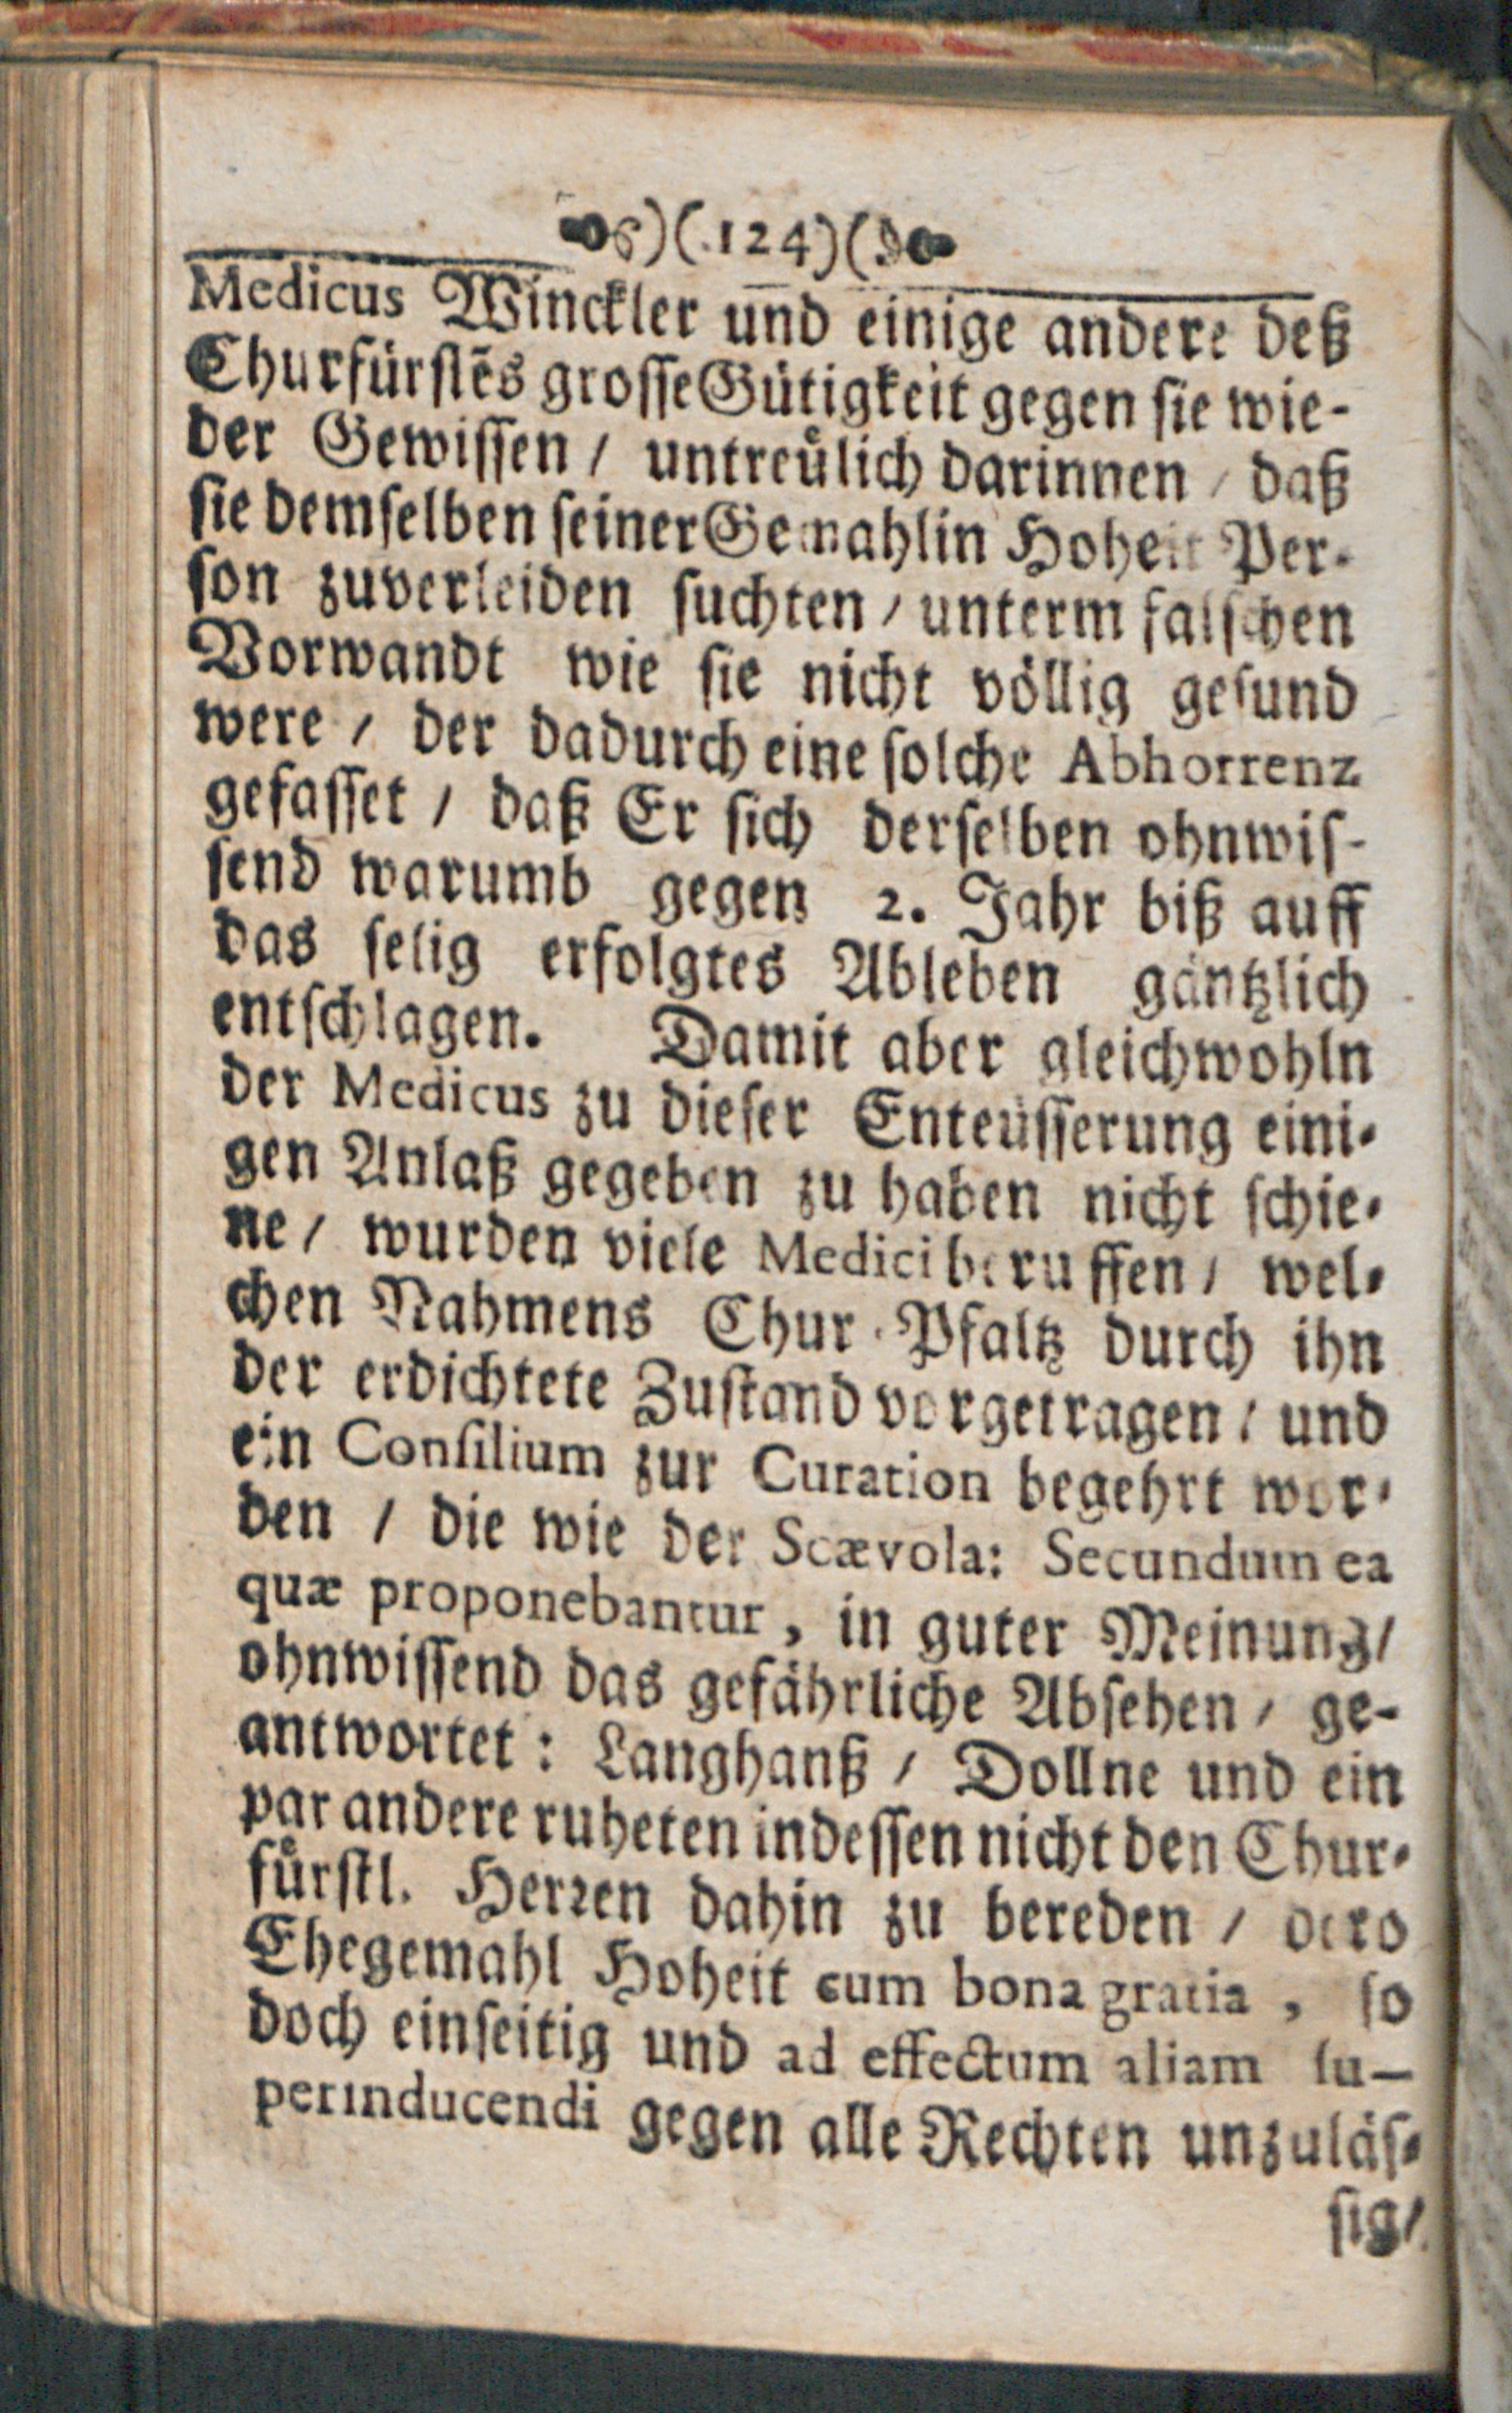 )( 124 )(
Medicus Winckler und einige andere deß
Churfürstẽs grosse Gütigkeit gegen sie wie-
der Gewissen / untreůlich darinnen / daß
sie demselben seiner Gemahlin Hoheit Per-
son zuverleiden suchten / unterm falschen
Vorwandt wie sie nicht völlig gesund
were / der dadurch eine solche Abhorrenz
gefasset / daß Er sich derselben ohnwis-
send warumb gegen 2. Jahr biß auff
das selig erfolgtes Ableben gäntzlich
entschlagen. Damit aber gleichwohln
der Medicus zu dieser Enteüsserung eini-
gen Anlaß gegeben zu haben nicht schie-
ne / wurden viele Medici beruffen / wel-
chen Nahmens Chur-Pfaltz durch ihn
der erdichtete Zustand vorgetragen / und
ein Consilium zur Curation begehrt wor-
den / die wie der Scævola: Secundum ea
quæ proponebantur, in guter Meinung /
ohnwissend das gefährliche Absehen / ge-
antwortet: Langhanß / Dollne und ein
par andere ruheten indessen nicht den Chur-
fürstl. Herren dahin zu bereden / dero
Ehegemahl Hoheit cum bona gratia, so
doch einseitig und ad effectum aliam su-
perinducendi gegen alle Rechten unzuläs-
sig /